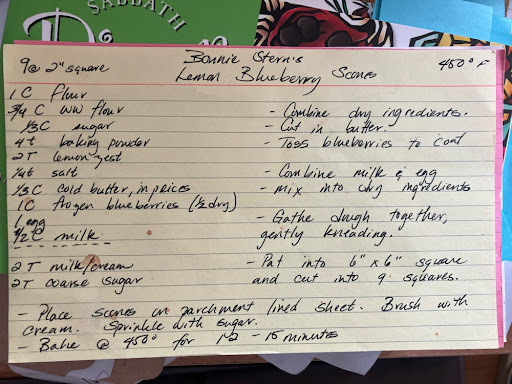 SABBATH
Bonnie Stern's
9@ 2" square
Lemon Blueberry Scones
450° F
1 C flour
3/4 C WW flour
1/3 C sugar
4 t baking powder
2 T lemon zest
1/4 t salt
1/3 C cold butter, in pieces
1 C frozen blueberries (1/2 dry)
1 egg
1/2 C milk
2 T milk/cream
2 T coarse sugar
- Combine dry ingredients.
- Cut in butter.
- Toss blueberries to coat
- Combine milk & egg
- mix into dry ingredients
- Gathe dough together,
gently kneading.
- Pat into 6" x 6" square
and cut into 9 squares.
- Place scones on parchment lined sheet. Brush with
cream. Sprinkle with sugar.
- Bake @ 450° for 12 - 15 minutes